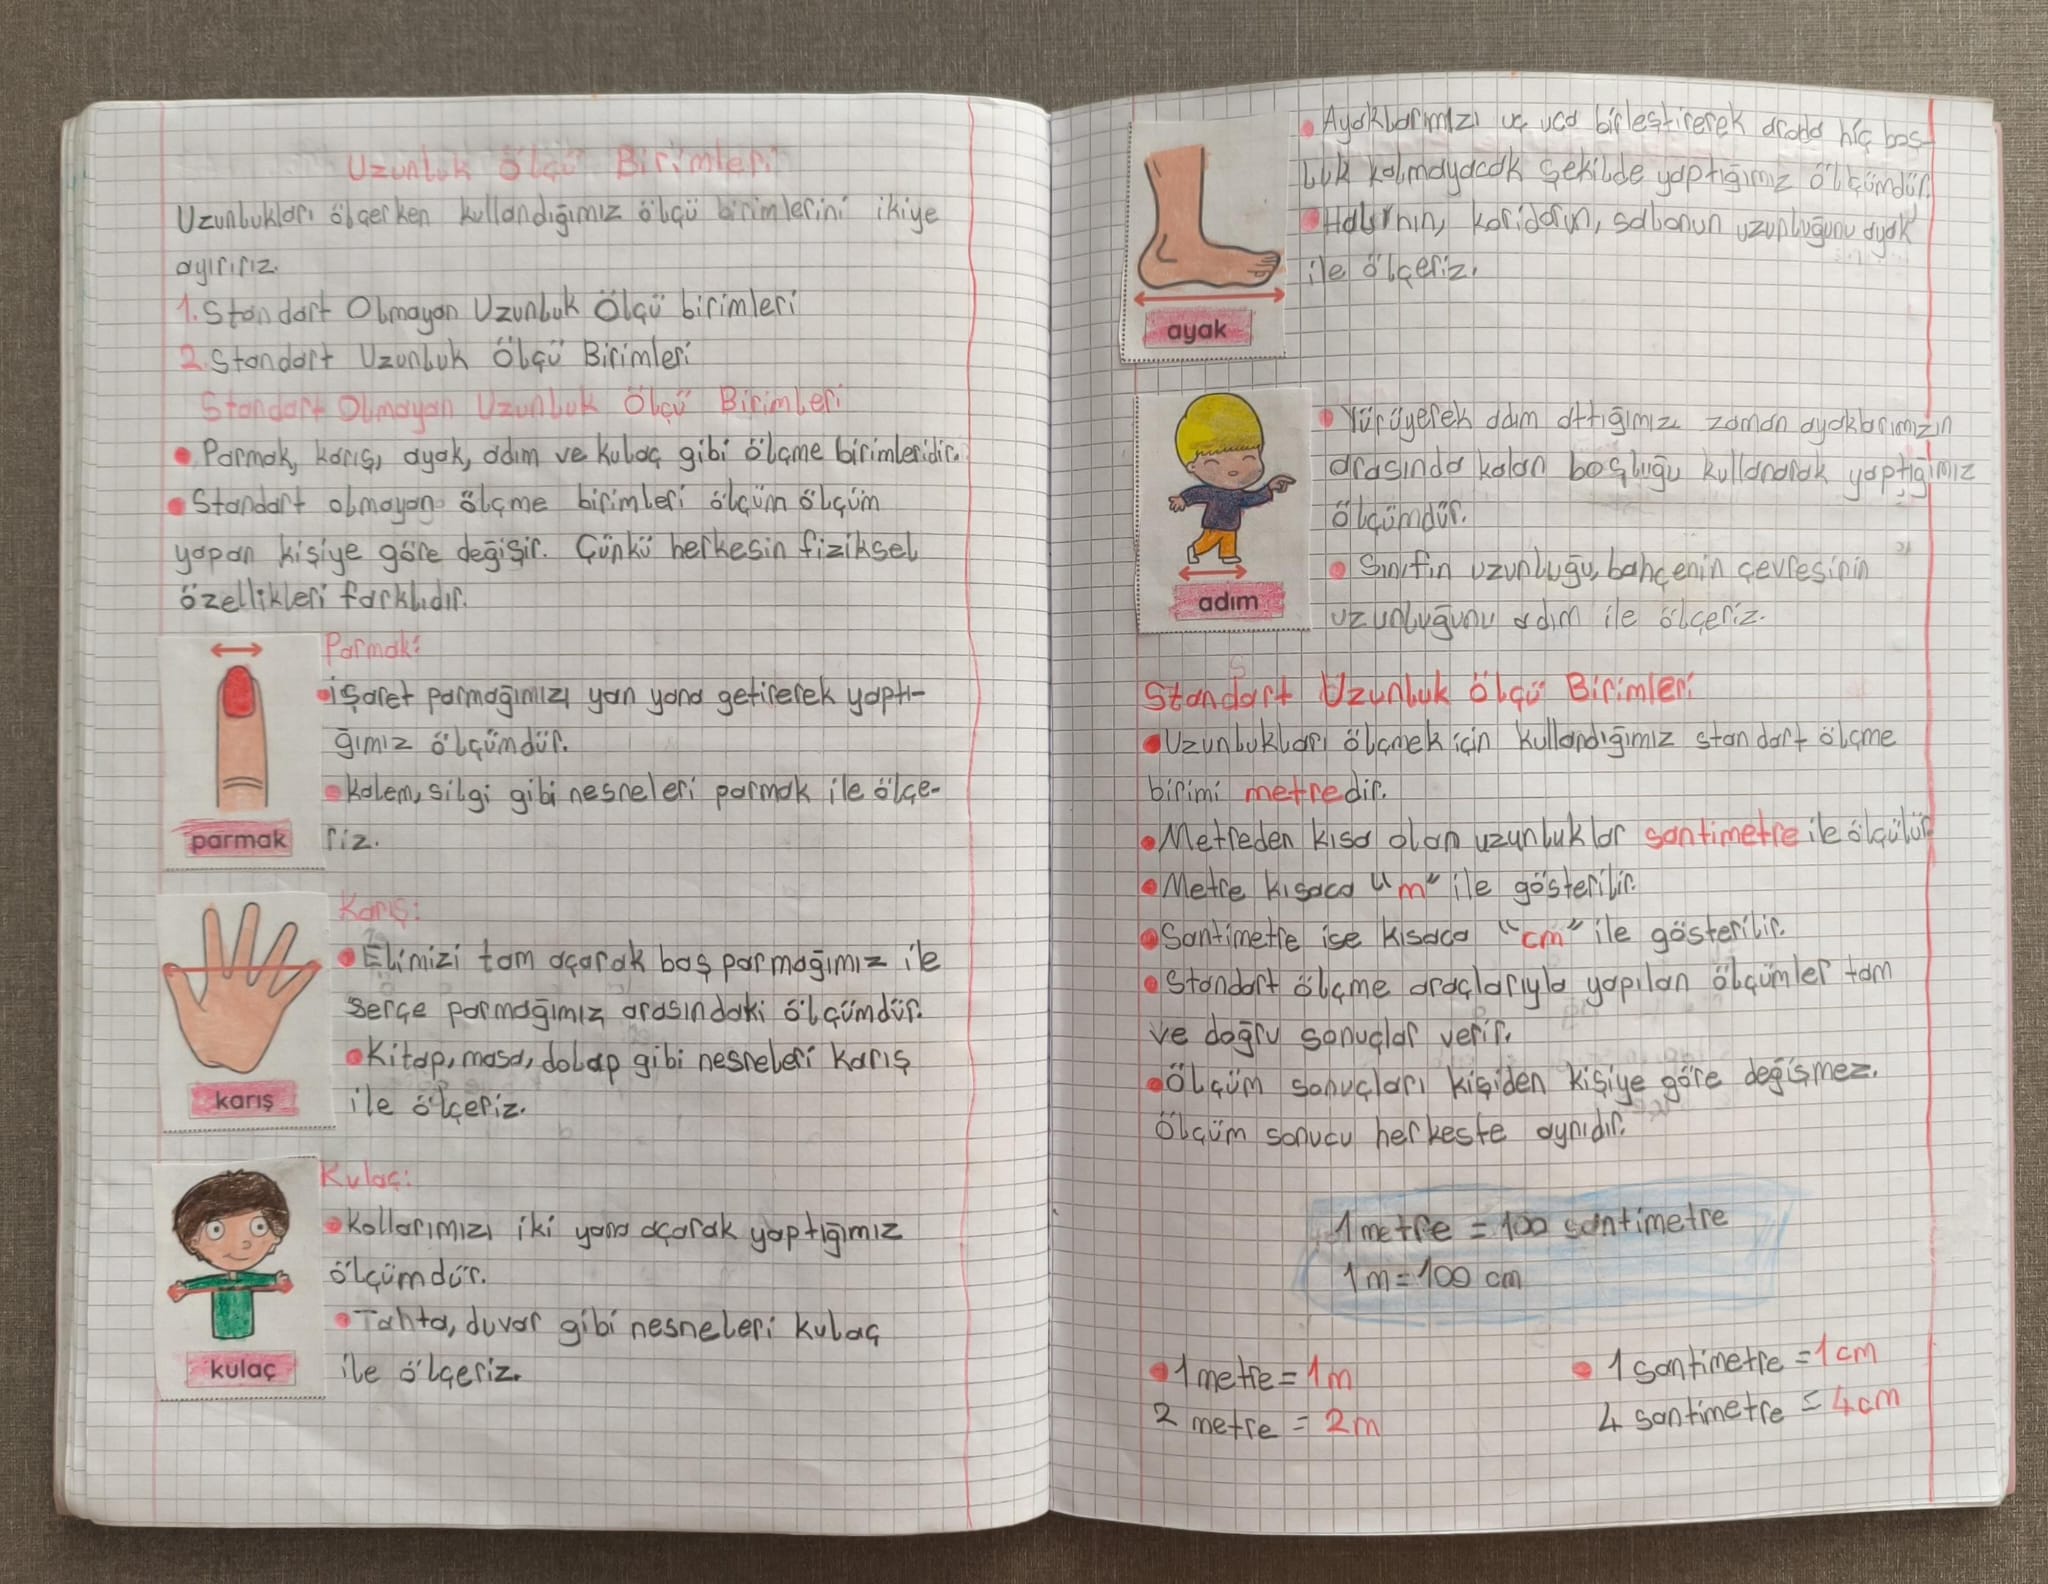 Uzunluk Ölçü Birimleri
Uzunlukları ölçerken kullandığımız ölçü birimlerini ikiye
ayırırız.
1. Standart Olmayan Uzunluk Ölçü birimleri
2. Standart Uzunluk Ölçü Birimleri
Standart Olmayan Uzunluk Ölçü Birimleri
Parmak, karış, ayak, adım ve kulaç gibi ölçme birimleridir.
Standart olmayan ölçme birimleri ölçüm ölçüm
yapan kişiye göre değişir. Çünkü herkesin fiziksel
özellikleri farklıdır.
Parmak:
işaret parmağımızı yan yana getirerek yaptı-
ğımız ölçümdür.
Kalem, silgi gibi nesneleri parmak ile ölçe-
riz.
parmak
Karış:
Elimizi tam açarak baş parmağımız ile
serçe parmağımız arasındaki ölçümdür.
Kitap, masa, dolap gibi nesneleri karış
ile ölçeriz.
karış
Kulaç:
Kollarımızı iki yana açarak yaptığımız
ölçümdür.
Tahta, duvar gibi nesneleri kulaç
ile ölçeriz.
kulaç
Ayaklarımızı uç uca birleştirerek arada hiç boş-
luk kalmayacak şekilde yaptığımız ölçümdür.
Halının, koridorun, salonun uzunluğunu ayak
ile ölçeriz.
ayak
Yürüyerek adım attığımız zaman ayaklarımızın
arasında kalan boşluğu kullanarak yaptığımız
ölçümdür.
Sınıfın uzunluğu, bahçenin çevresinin
uzunluğunu adım ile ölçeriz.
adım
Standart Uzunluk ölçü Birimleri
Uzunlukları ölçmek için kullandığımız standart ölçme
birimi metredir.
Metreden kısa olan uzunluklar santimetre ile ölçülür.
Metre kısaca "m" ile gösterilir.
Santimetre ise kısaca "cm" ile gösterilir.
Standart ölçme araçlarıyla yapılan ölçümler tam
ve doğru sonuçlar verir.
Ölçüm sonuçları kişiden kişiye göre değişmez.
Ölçüm sonucu herkeste aynıdır.
1 metre = 100 santimetre
1 m = 100 cm
1 metre = 1m
2 metre = 2m
1 santimetre = 1 cm
4 santimetre = 4cm